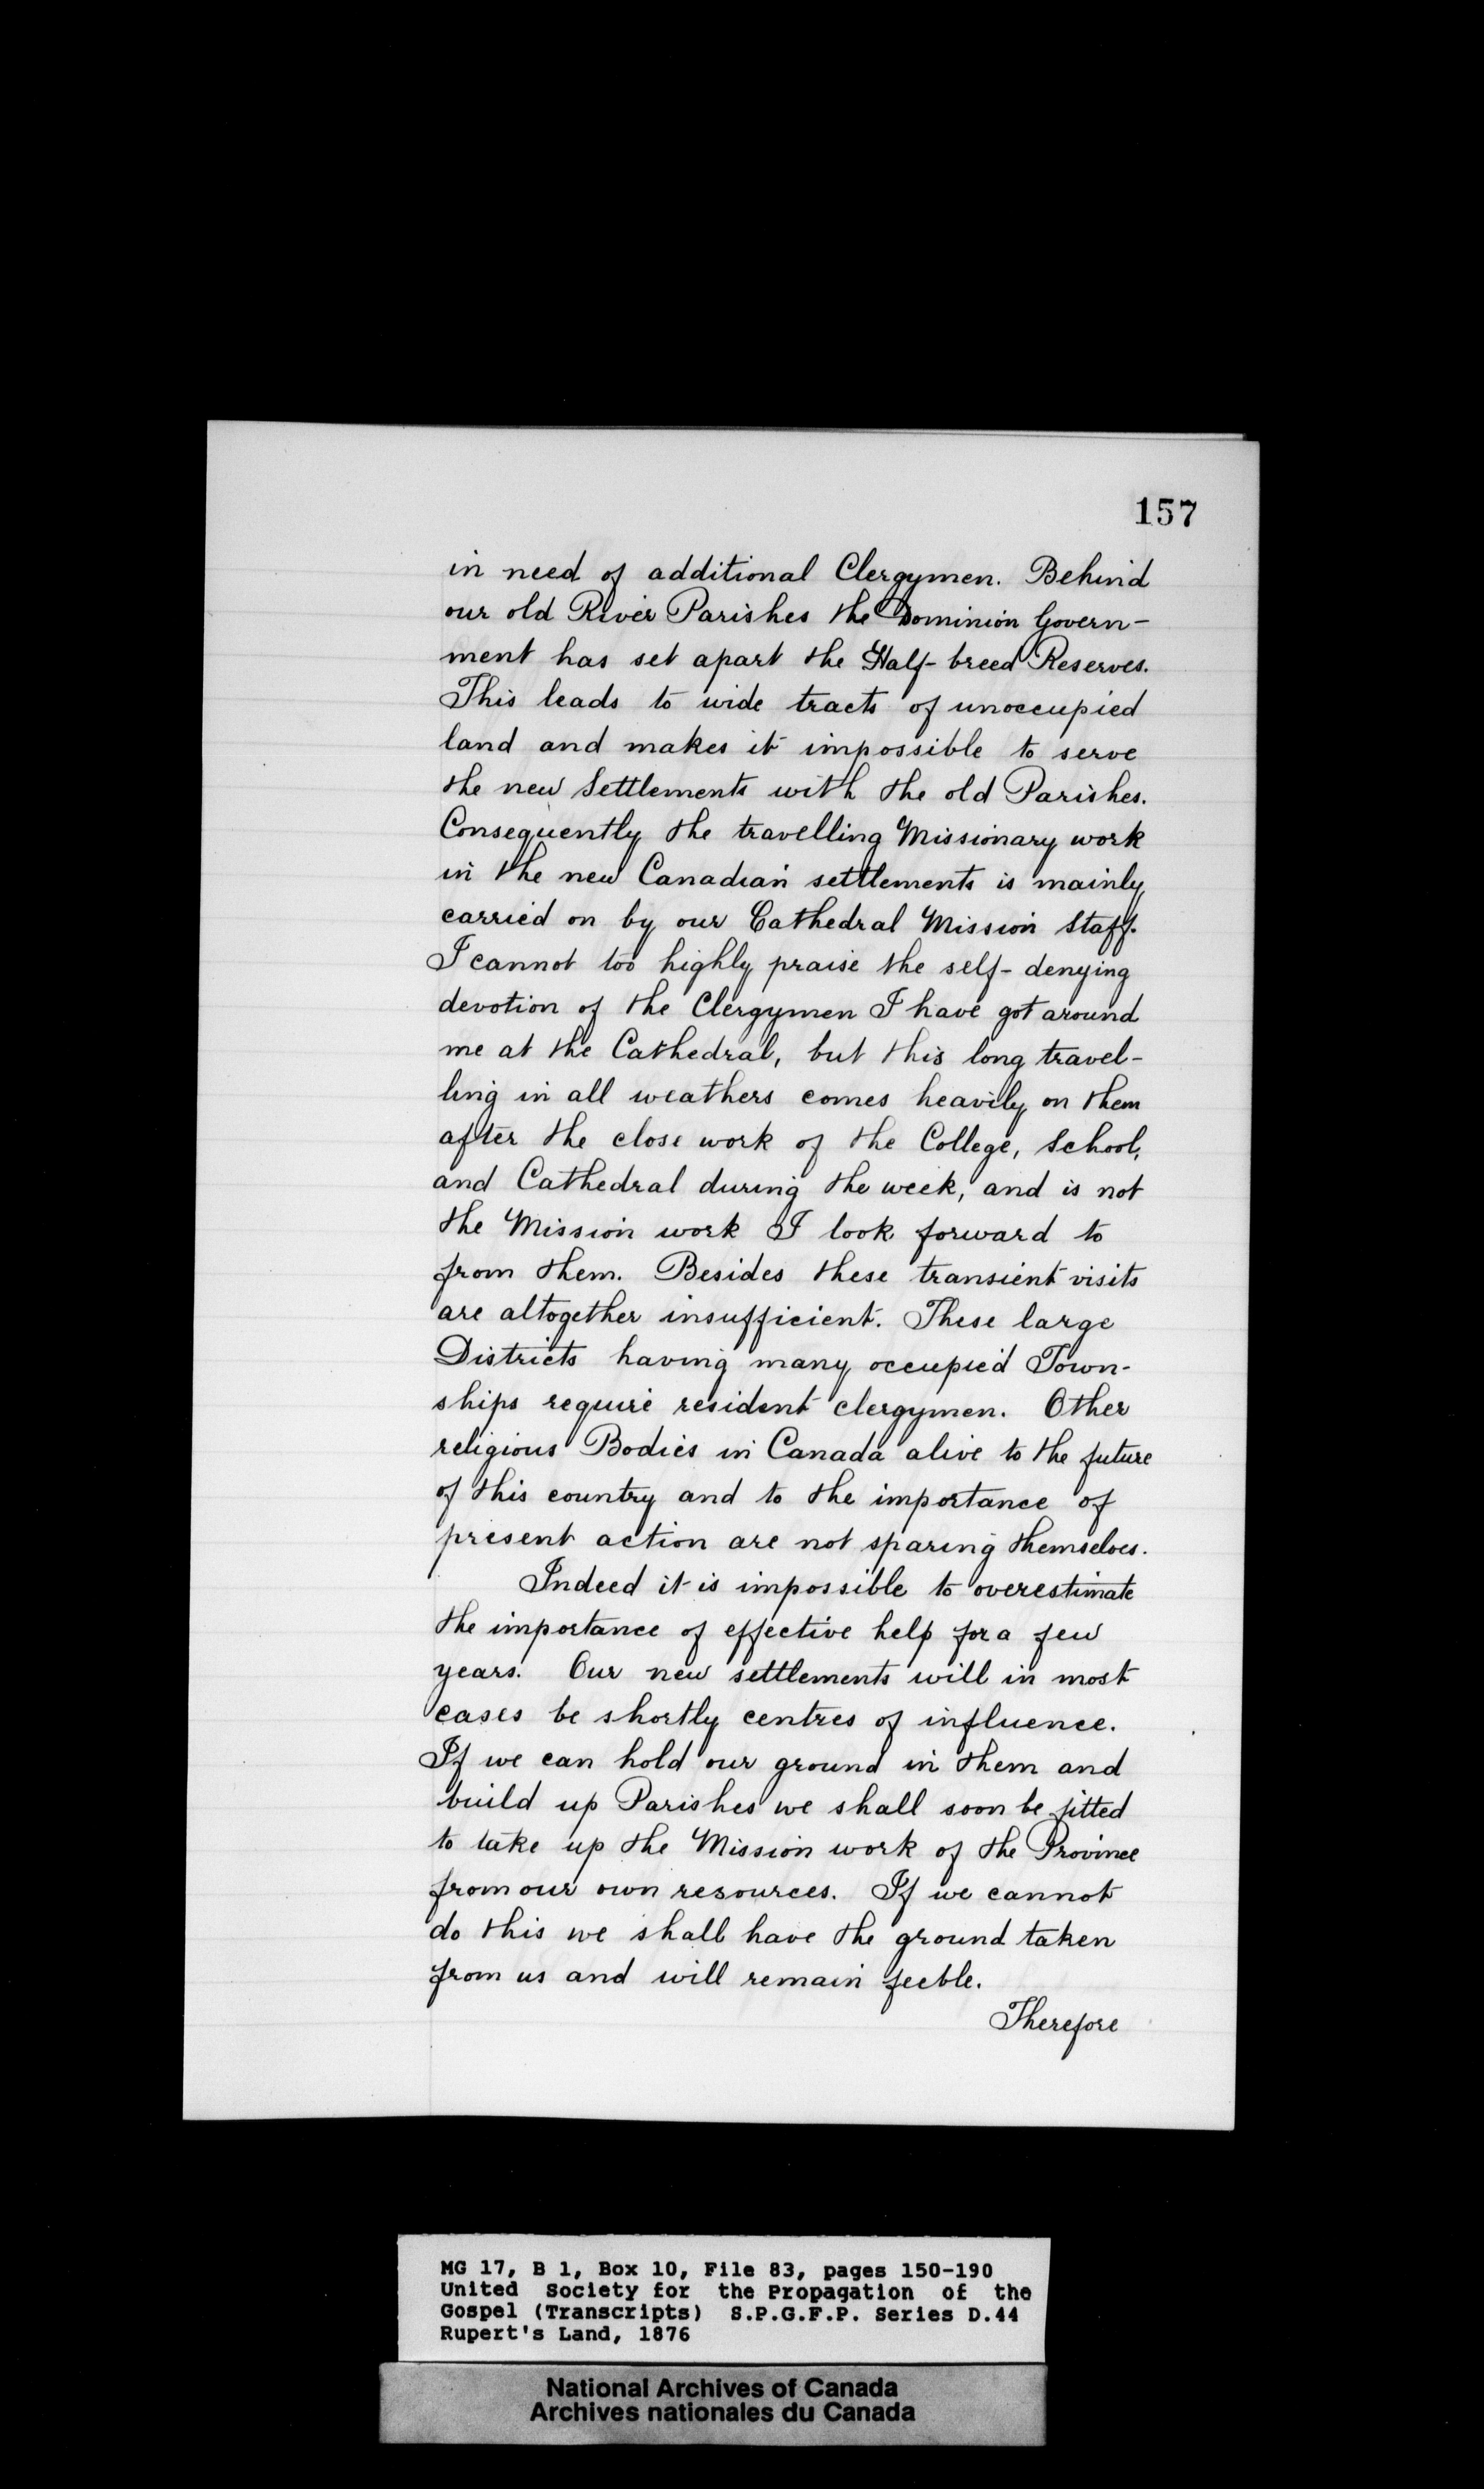 157
in need of additional Clergymen. Behind
our old River Parishes the Dominion Govern-
ment has set apart the Half-breed Reserves.
This leads to wide tracts of unoccupied
land and makes it impossible to serve
the new Settlements with the old Parishes.
Consequently the travelling Missionary work
in the new Canadian settlements is mainly
carried on by our Cathedral Mission Staff.
I cannot too highly praise the self-denying
devotion of the Clergymen I have got around
me at the Cathedral, but this long travel-
ling in all weathers comes heavily on them
after the close work of the College, School,
and Cathedral during the week, and is not
the Mission work I look forward to
from them. Besides these transient visits
are altogether insufficient. These large
Districts having many occupied Town-
ships require resident clergymen. Other
religious Bodies in Canada alive to the future
of this country and to the importance of
present action are not sparing themselves.
Indeed it is impossible to overestimate
the importance of effective help for a few
years. Our new settlements will in most
cases be shortly centres of influence.
If we can hold our ground in them and
build up Parishes we shall soon be fitted
to take up the Mission work of the Province
from our own resources. If we cannot
do this we shall have the ground taken
from us and will remain feeble.
Therefore
MG 17, B 1, Box 10, File 83, pages 150-190
United Society for the Propagation of the
Gospel (Transcripts) S.P.G.F.P. Series D.44
Rupert's Land, 1876
National Archives of Canada
Archives nationales du Canada